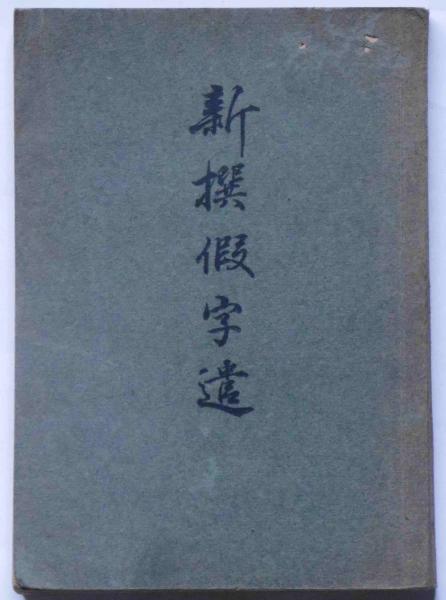 新撰假字遣